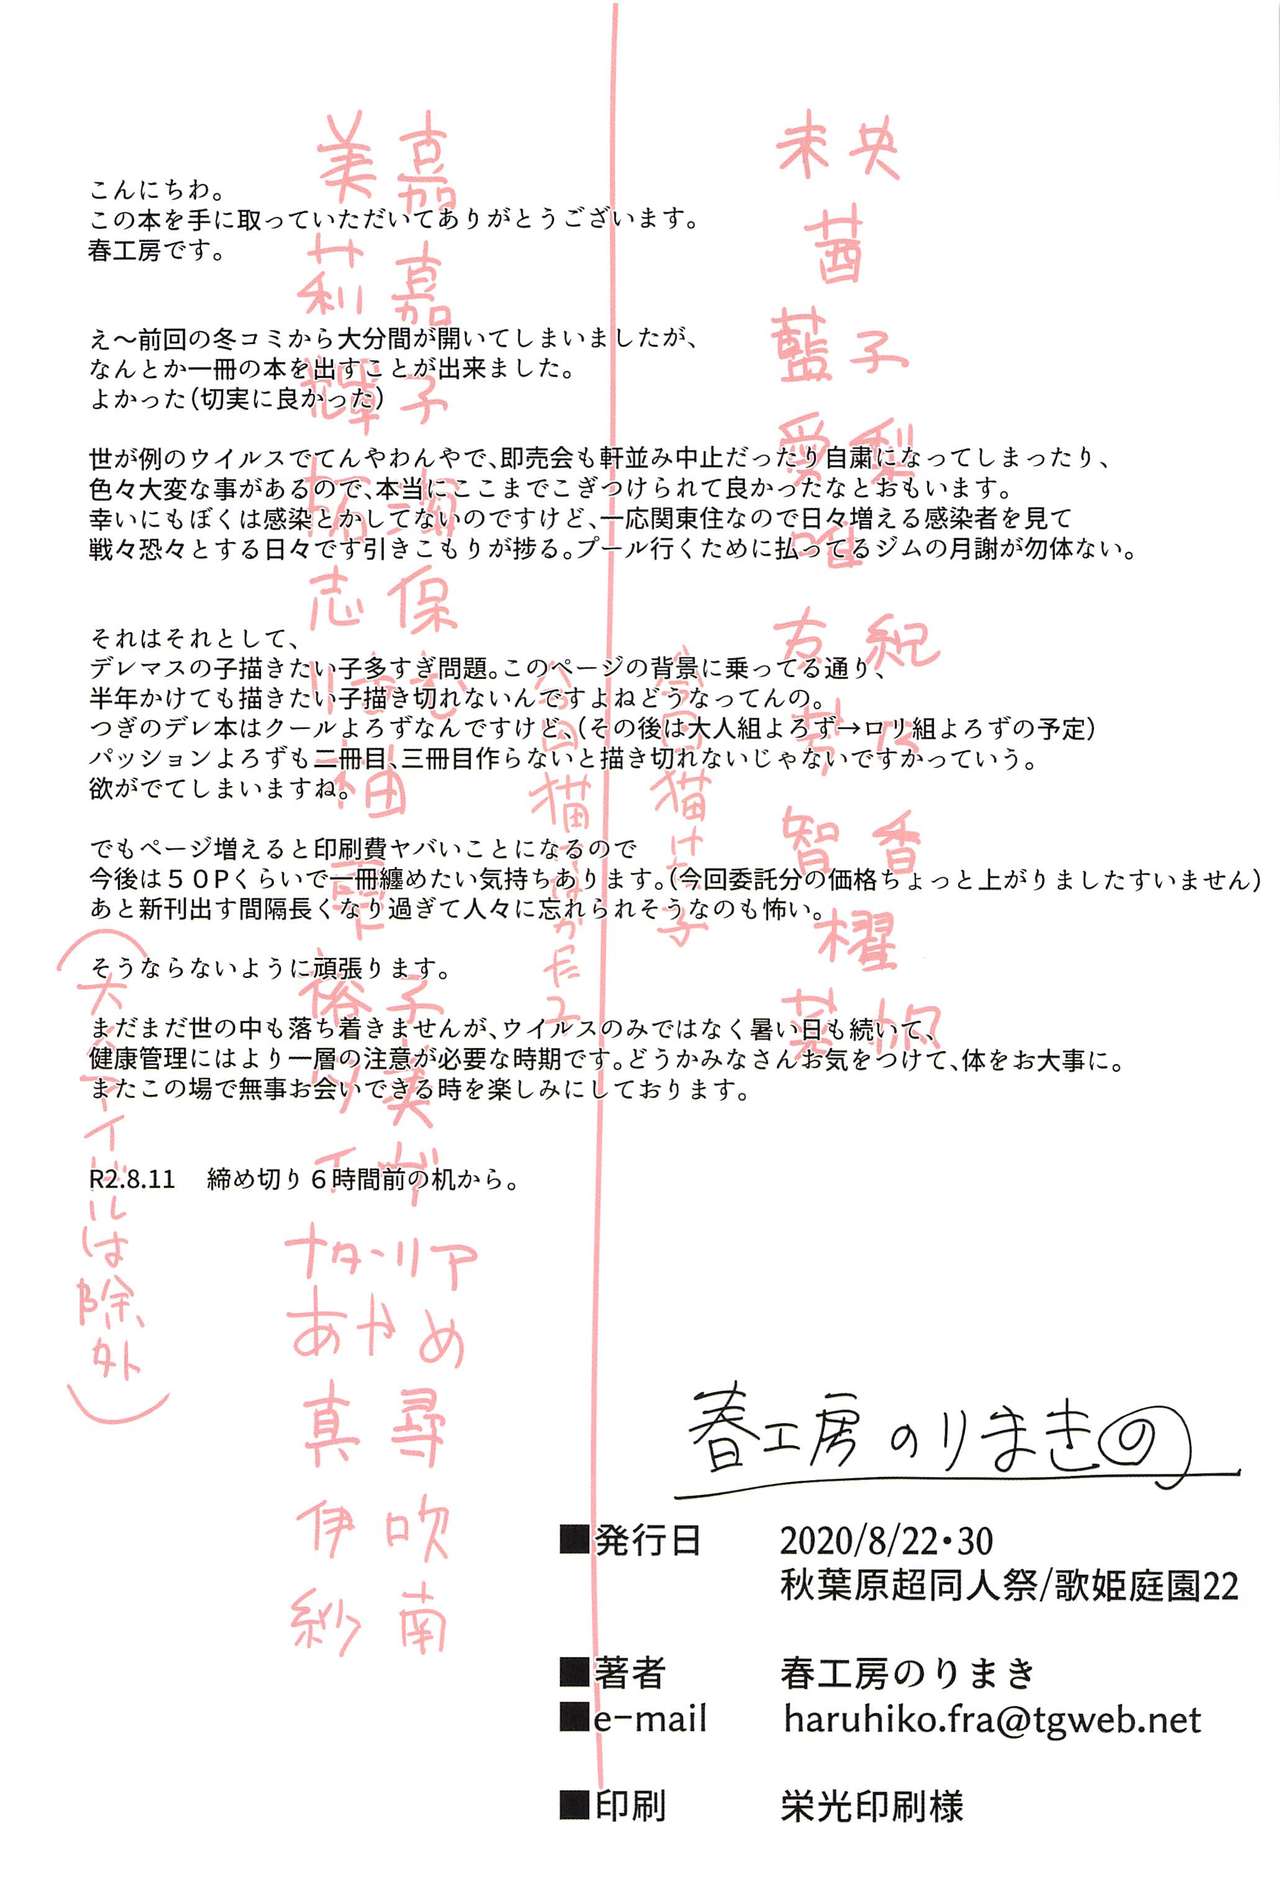 こんにちわ。
この本を手に取っていただいてありがとうございます。
春工房です。
え〜前回の冬コミから大分間が開いてしまいましたが、
なんとか一冊の本を出すことが出来ました。
よかった（切実に良かった）
世が例のウイルスでてんやわんやで、即売会も軒並み中止だったり自粛になってしまったり、
色々大変な事があるので、本当にここまでこぎつけられて良かったなとおもいます。
幸いにもぼくは感染とかしてないのですけど、一応関東住なので日々増える感染者を見て
戦々恐々とする日々です引きこもりが捗る。プール行くために払ってるジムの月謝が勿体ない。
それはそれとして、
デレマスの子描きたい子多すぎ問題。このページの背景に乗ってる通り、
半年かけても描きたい子描き切れないんですよねどうなってんの。
つぎのデレ本はクールよろずなんですけど、（その後は大人組よろず→ロリ組よろずの予定）
パッションよろずも二冊目、三冊目作らないと描き切れないじゃないですかっていう。
欲がでてしまいますね。
でもページ増えると印刷費ヤバいことになるので
今後は５０Pくらいで一冊纏めたい気持ちあります。（今回委託分の価格ちょっと上がりましたすいません）
あと新刊出す間隔長くなり過ぎて人々に忘れられそうなのも怖い。
そうならないように頑張ります。
まだまだ世の中も落ち着きませんが、ウイルスのみではなく暑い日も続いて、
健康管理にはより一層の注意が必要な時期です。どうかみなさんお気をつけて、体をお大事に。
またこの場で無事お会いできる時を楽しみにしております。
R2.8.11　締め切り６時間前の机から。
未央
茜
藍子
愛梨
唯
友紀
智香
櫂
今回描けた子
美嘉
莉嘉
輝子
拓海
志保
りあむ
裕子
ナターリア
あやめ
真尋
伊吹
紗南
春工房のりまき の
■発行日　2020/8/22・30
秋葉原超同人祭/歌姫庭園22
■著者　春工房のりまき
■e-mail　haruhiko.fra@tgweb.net
■印刷　栄光印刷様